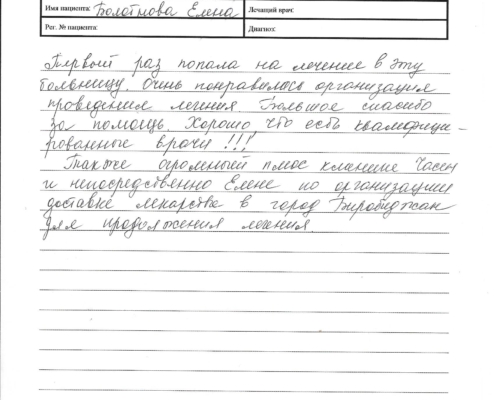 Имя пациента: Болотнова Елена Лечащий врач:
Рег. № пациента: Диагноз:
Первый раз попала на лечение в эту
больницу. Очень понравилось организация
проведения лечния. Большое спасибо
за помощь. Хорошо что есть квалифици-
рованные врачи !!!
Также огромный плюс клинике Часен
и непосредственно Елене по организации
доставке лекарства в город Биробиджан
для продолжения лечения.